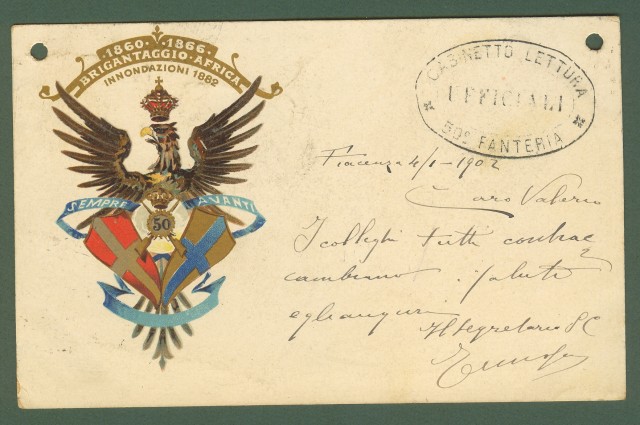 1860 · 1866
BRIGANTAGGIO · AFRICA
INNONDAZIONI 1882
SEMPRE AVANTI
50
GABINETTO LETTURA
UFFICIALI
50° FANTERIA
Piacenza 4/1-1902
Caro Valerio
I colleghi tutti contrac
cambiano i saluti
e gli auguri
Il Segretario